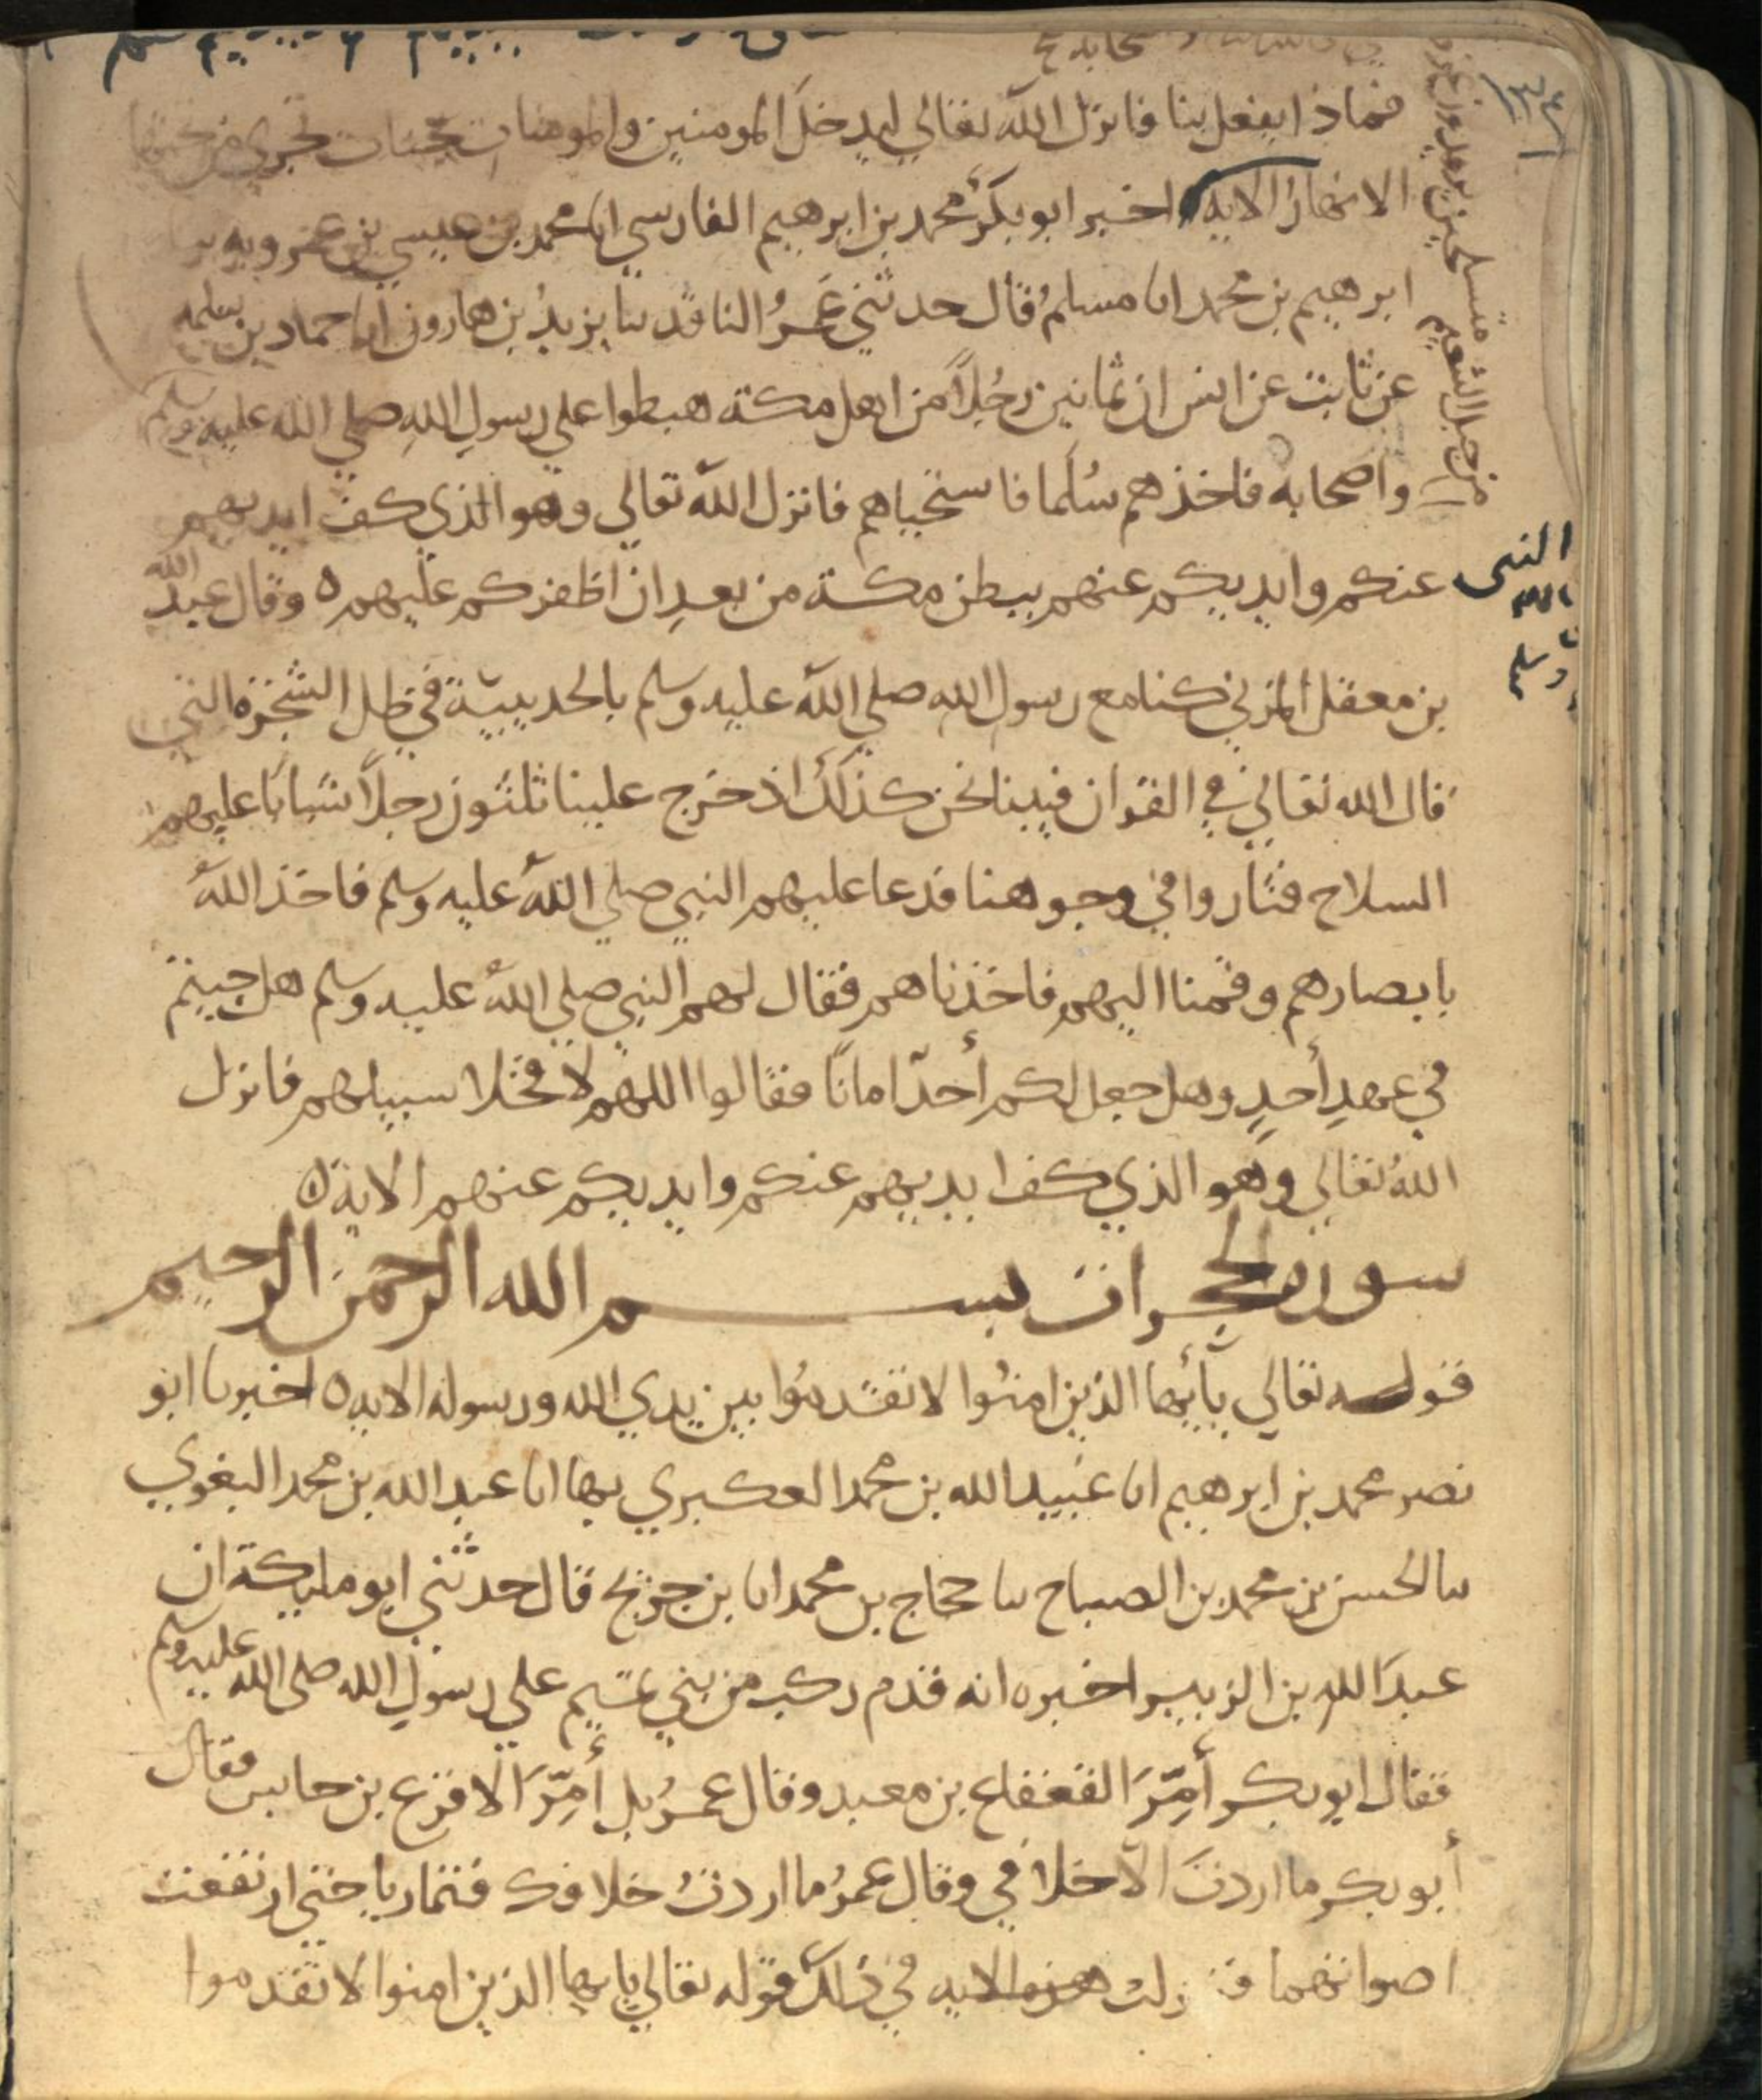 ١٣٤
فماذا يفعل بنا فانزل الله تعالى ليدخل المومنين والمومنات جنات تجري من تحتها
الانهار الاية اخبرنا ابو بكر محمد بن ابرهيم الفارسي انا محمد بن عيسي بن عمرويه نا
ابرهيم بن محمد انا مسلم قال حدثني عمرو الناقد نا يزيد بن هارون انا حماد بن سلمه
عن ثابت عن انس ان ثمانين رجلاً من اهل مكة هبطوا علي رسول الله صلي الله عليه وسلم
من جبل التنعيم متسلحين يريدون غرة
واصحابه فاخذهم سلما فاستحياهم فانزل الله تعالي وهو الذي كف ايديهم
عنكم وايديكم عنهم ببطن مكة من بعد ان اظفركم عليهم ٥ وقال عبد الله
النبى
وسلم
بن معقل المزني كنا مع رسول الله صلي الله عليه وسلم بالحديبيّة في ظل الشجرة التي
قال الله تعالي في القران فبينا نحن كذلك اذ خرج علينا ثلثون رجلاً شبابًا عليهم
السلاح فثاروا في وجوهنا فدعا عليهم النبي صلي الله عليه وسلم فاخذ الله
بابصارهم وقمنا اليهم فاخذناهم فقال لهم النبي صلي الله عليه وسلم هل جيتم
في عهد أحدٍ وهل جعل لكم أحدٌ امانًا فقالوا اللهم لا فخلا سبيلهم فانزل
الله تعالي وهو الذي كف ايديهم عنكم وايديكم عنهم الاية ٥
سورة الحجرات بسم الله الرحمن الرحيم
قوله تعالي يأيها الذين امنوا لا تقدموا بين يدي الله ورسوله الايه ٥ اخبرنا ابو
نصر محمد بن ابرهيم انا عبيد الله بن محمد العكبري بها انا عبد الله بن محمد البغوي
نا الحسن بن محمد بن الصباح نا حجاج بن محمد انا بن جريج قال حدثني ابو مليكة ان
عبد الله بن الزبير اخبره انه قدم ركب من بني تميم علي رسول الله صلى الله عليه وسلم
فقال ابو بكر أمِّرَ القعقاع بن معبد وقال عمرُ بل أمِّرَ الاقرع بن حابس فقال
أبو بكر ما اردتَ الا خلافي وقال عمرُ ما اردتُ خلافك فتماريا حتي ارتفعت
اصواتهما فنزلت هذه الايه في ذلك قوله تعالي يايها الذين امنوا لا تقدموا